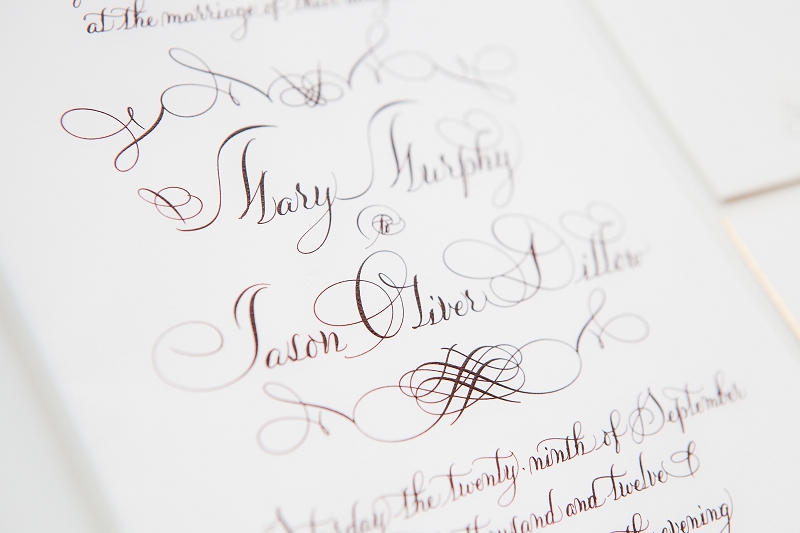 at the marriage of their
Mary Murphy
to
Jason Oliver Dillow
Saturday the twenty-ninth of September
thousand and twelve
evening